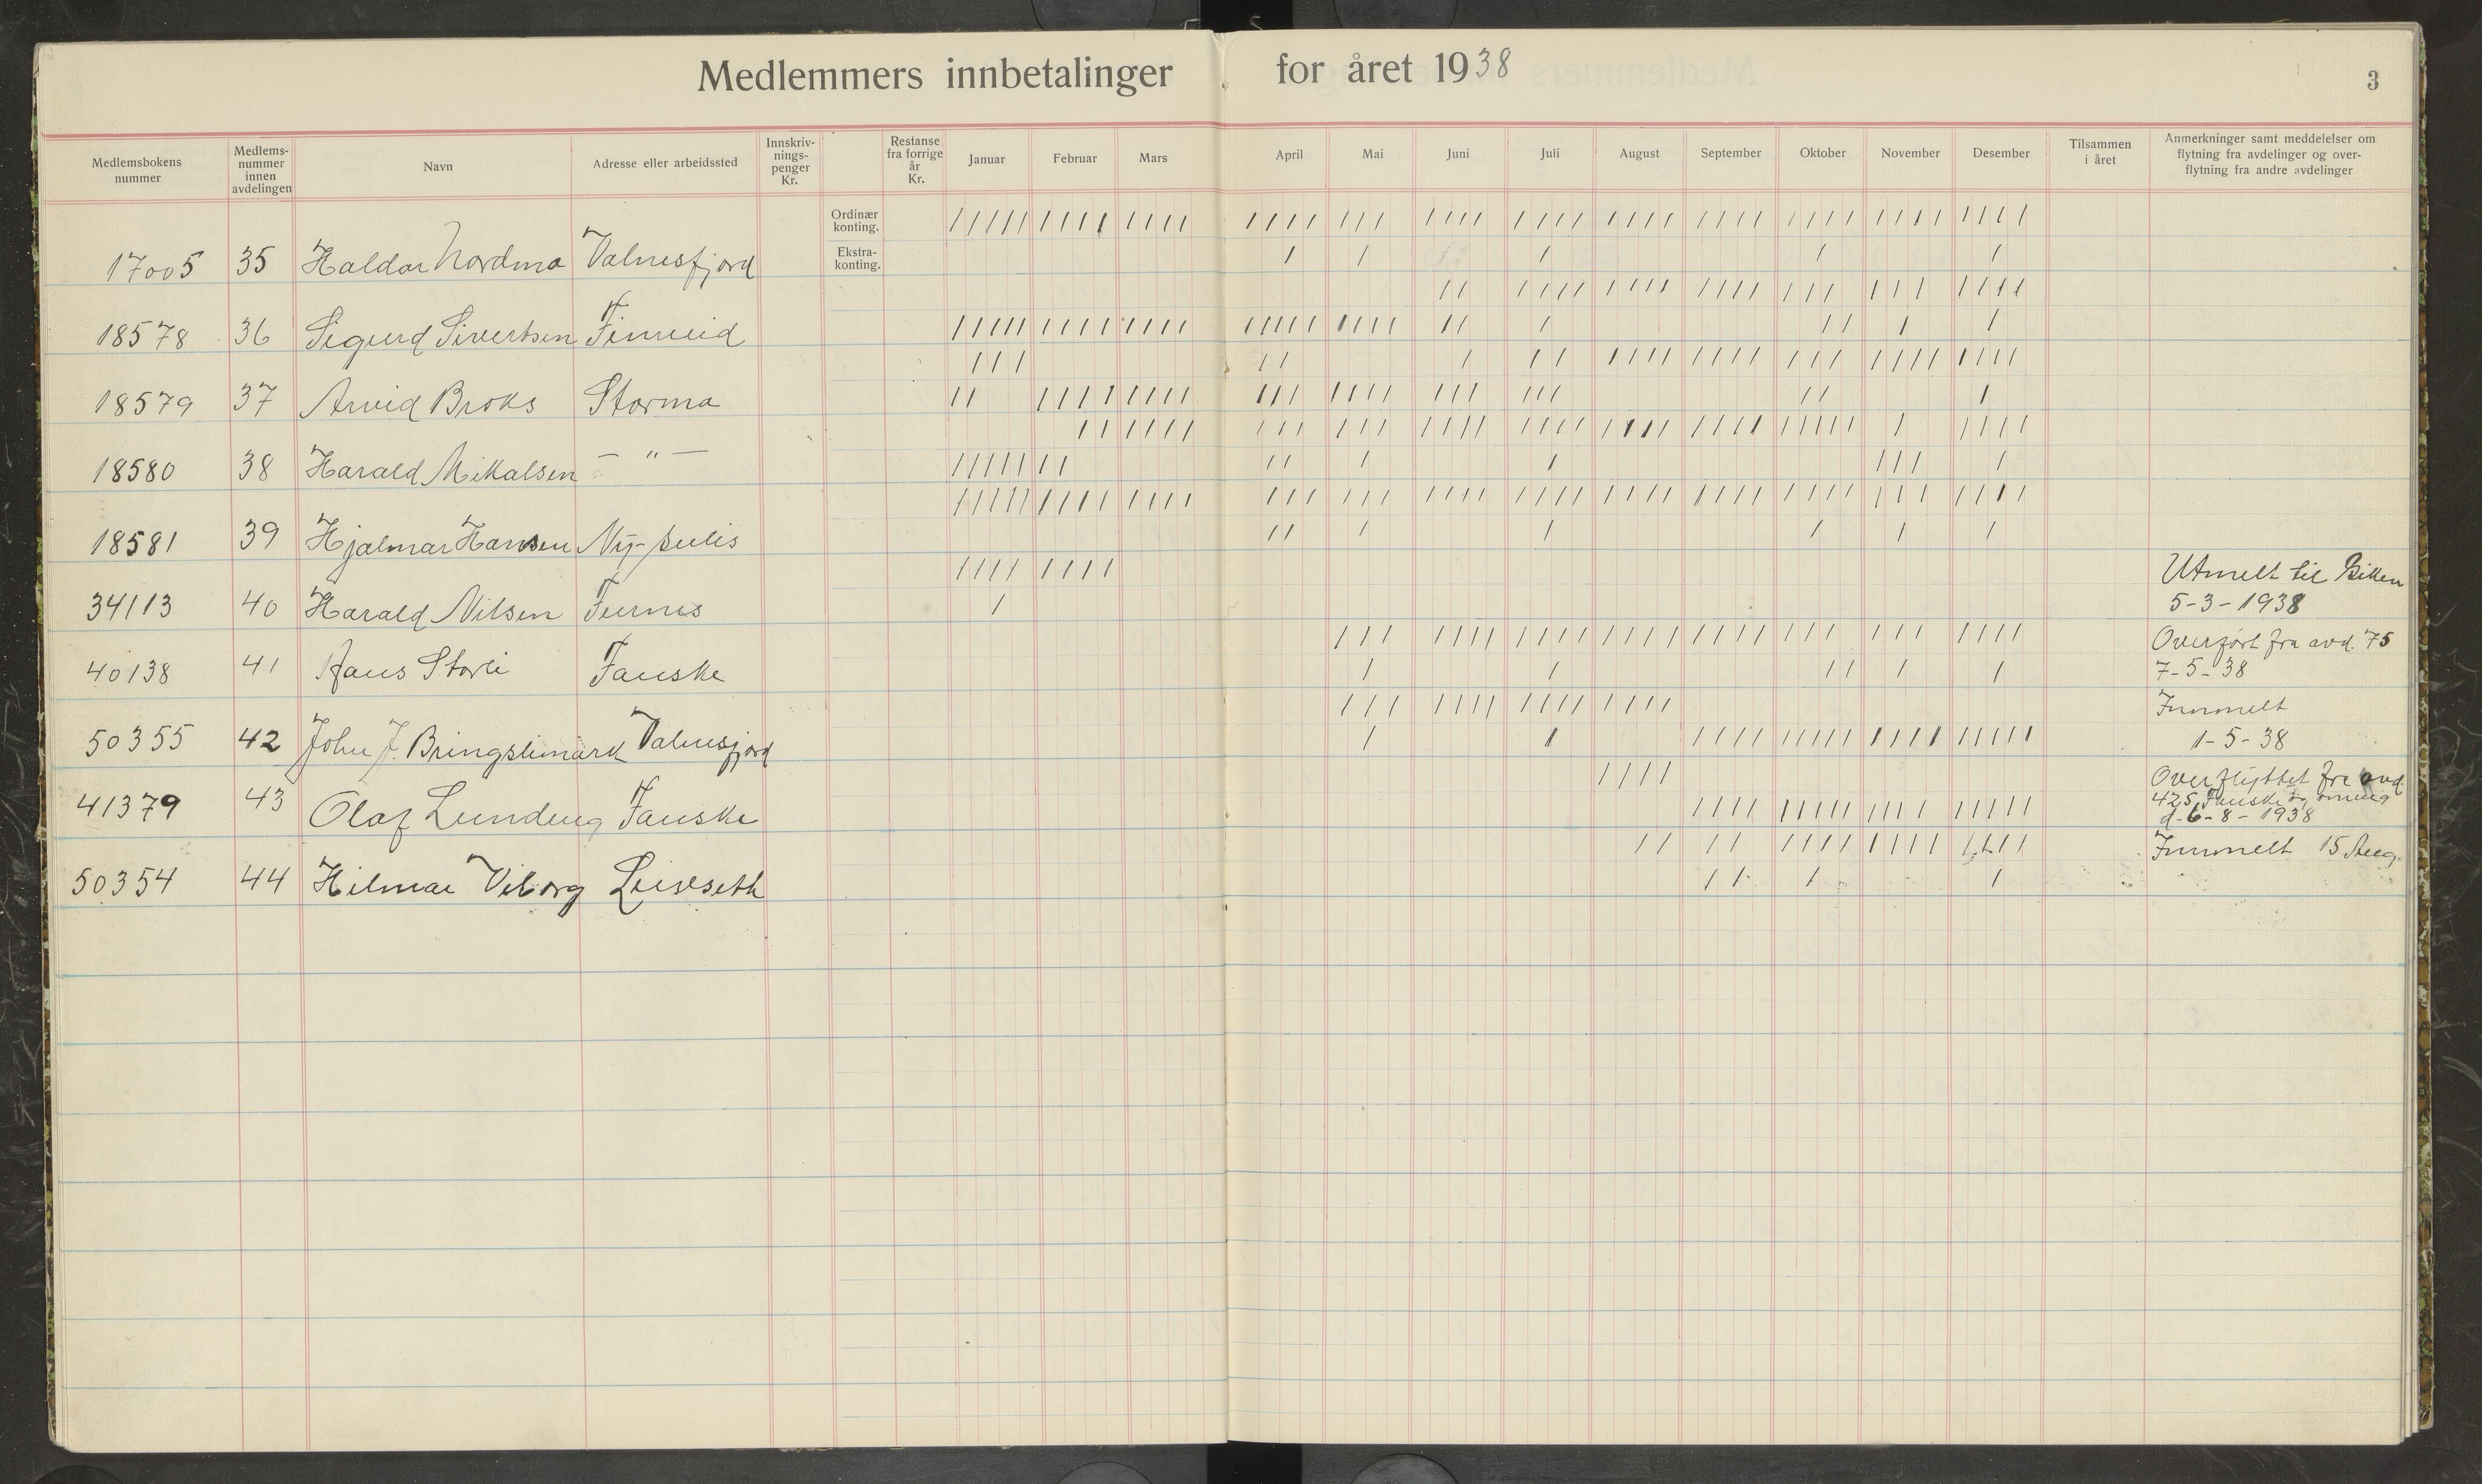 Medlemmers innbetalinger for året 1938
3
Medlemsbokens nummer
Medlems-nummer innen avdelingen
Navn
Adresse eller arbeidssted
Innskriv-nings-penger Kr.
Restanse fra forrige år Kr.
Januar
Februar
Mars
April
Mai
Juni
Juli
August
September
Oktober
November
Desember
Tilsammen i året
Anmerkninger samt meddelelser om
flytning fra avdelinger og over-
flytning fra andre avdelinger
Ordinær konting.
Ekstra-konting.
17005 35 Haldor Nordmo Valnesfjord
18578 36 Sigurd Sivertsen Finneid
18579 37 Arvid Broks Stormo
18580 38 Harald Mikalsen - " -
18581 39 Hjalmar Hansen Ny-sulis
34113 40 Harald Nilsen Furnes Utmelt til
5-3-1938
40138 41 Hans Storli Fauske Overført fra avd. 75
7-5-38
50355 42 John J. Bringslimark Valnesfjord Innmelt
1-5-38
41379 43 Olaf Fauske Overflyttet fra avd
425 Fauske og omeng
d. 6-8-1938
50354 44 Hilmar Viborg Leivseth Innmelt 15 Aug.